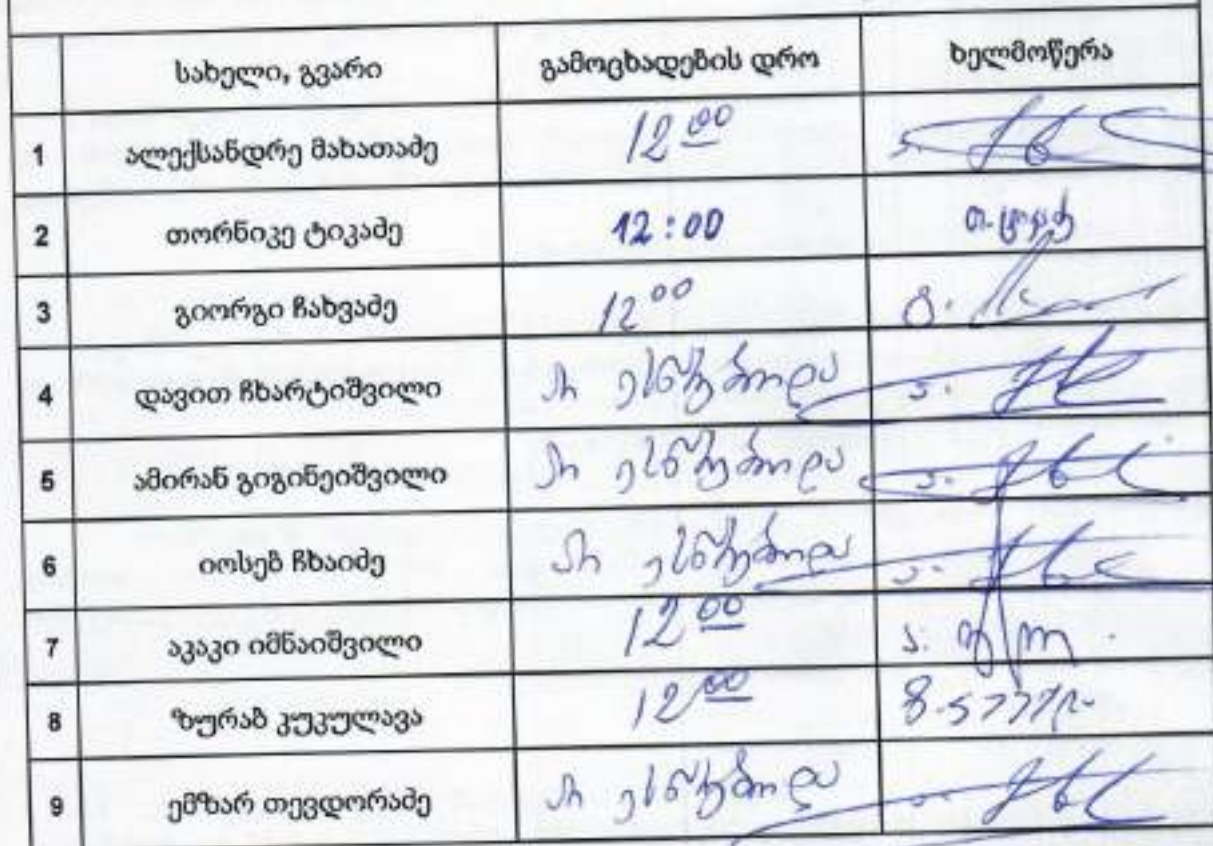 სახელი, გვარი გამოცხადების დრო ხელმოწერა
1 ალექსანდრე მახათაძე 12 00
2 თორნიკე ტიკაძე 12:00
3 გიორგი ჩახვაძე 12 00
4 დავით ჩხარტიშვილი არ ესწრებოდა
5 ამირან გიგინეიშვილი არ ესწრებოდა
6 იოსებ ჩხაიძე არ ესწრებოდა
7 აკაკი იმნაიშვილი 12 00
8 ზურაბ კუკულავა 12 00
9 ემზარ თევდორაძე არ ესწრებოდა